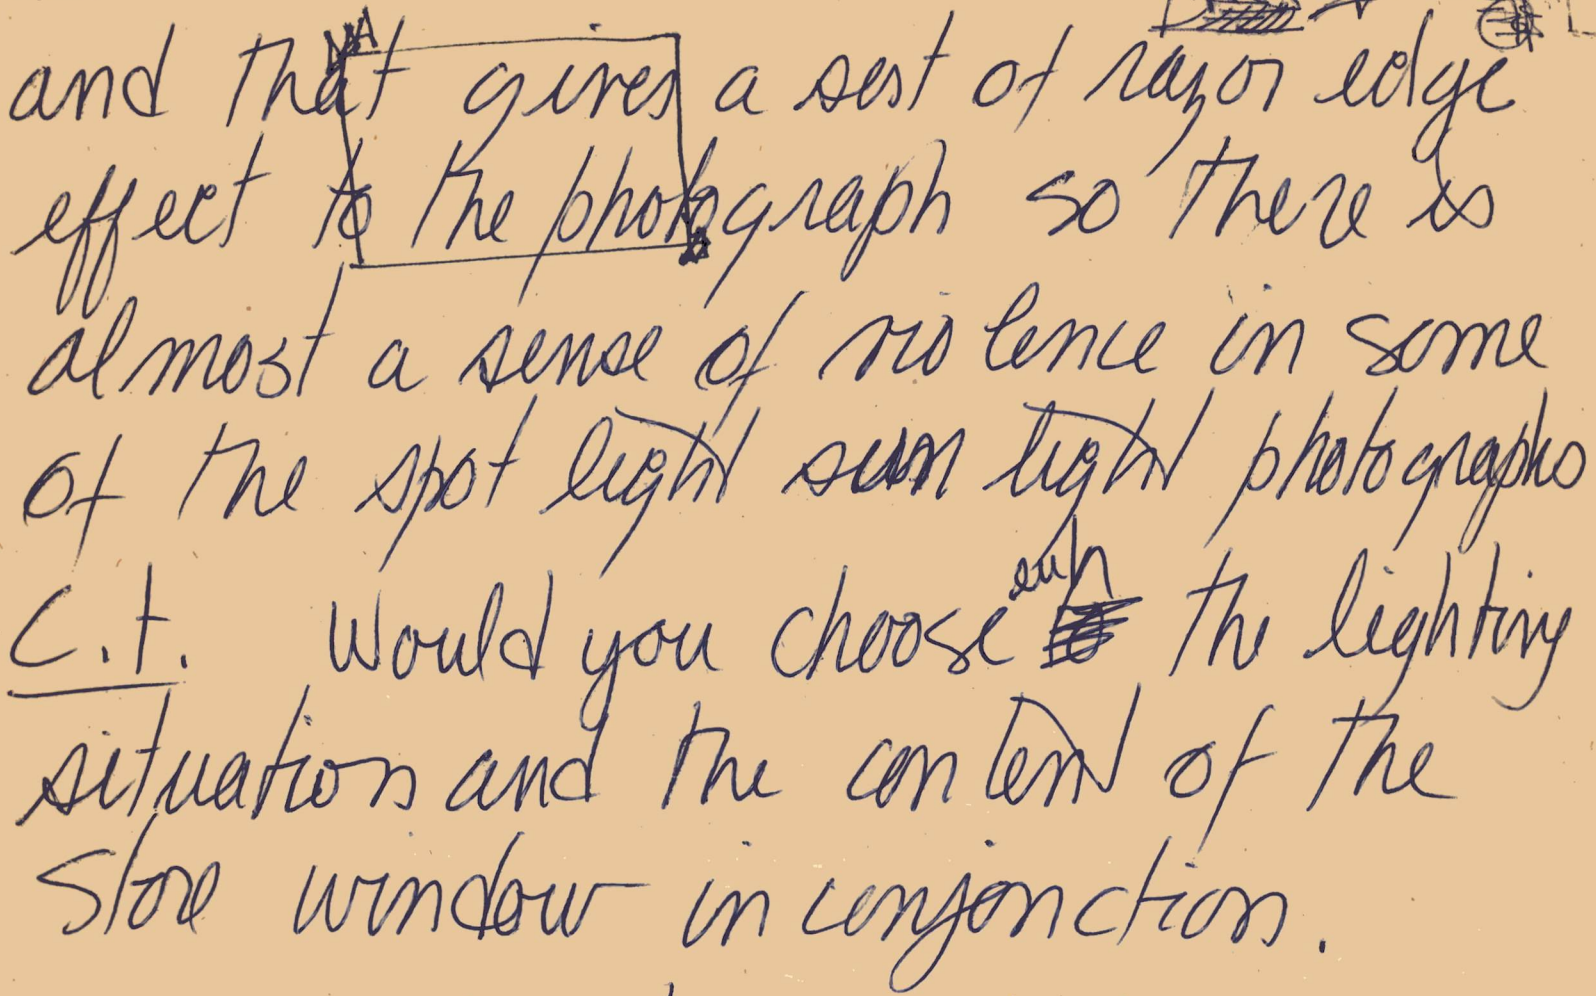 and that gives a sort of razor edge
effect to the photograph so there is
almost a sense of violence in some
of the spot light sun light photographs
C.t. Would you choose the lighting
situation and the content of the
Store window in conjonction.